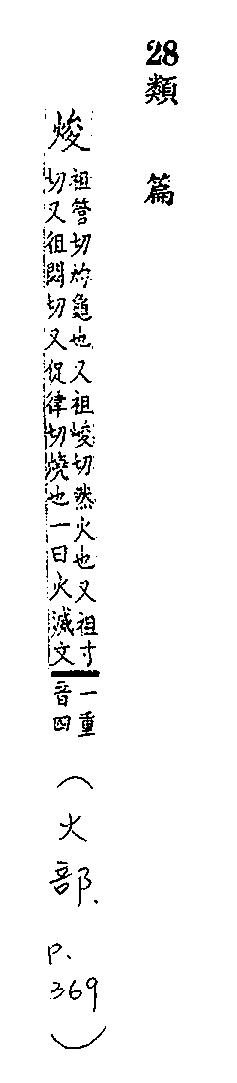 28類篇
焌
祖管切灼龜也又祖峻切然火也又祖寸
切又徂悶切又促律切燒也一曰火滅文
一重
音四
(火部.
p.
369)